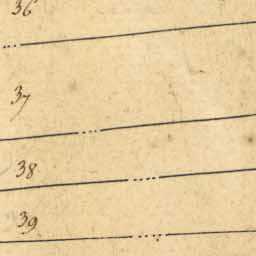 36
37
38
39